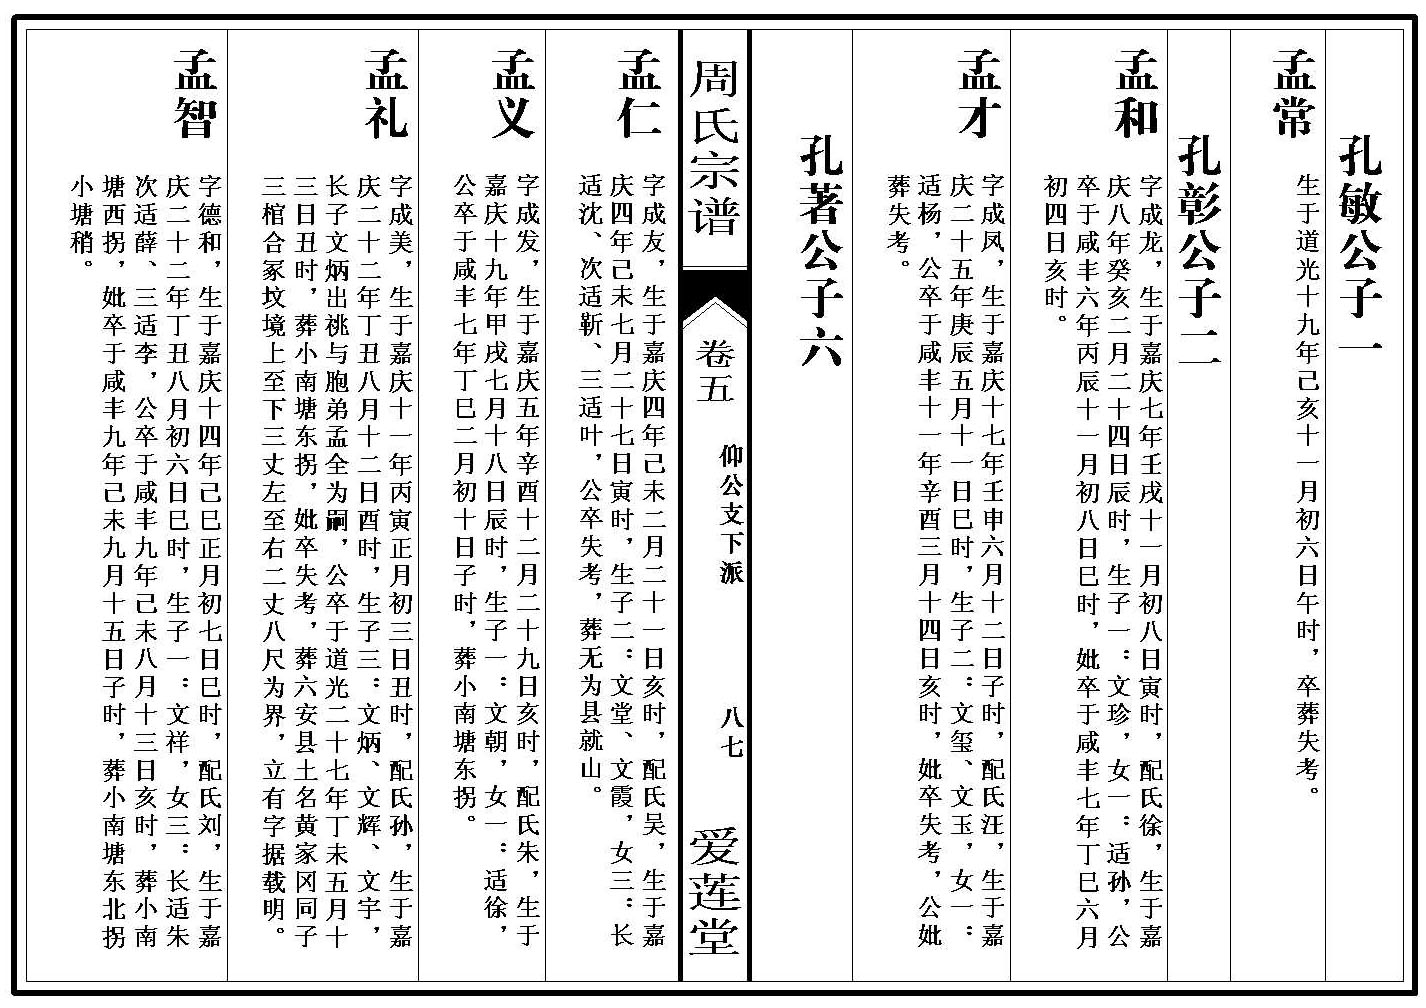 孔敏公子一
孟常
生于道光十九年己亥十一月初六日午时，卒葬失考。
孔彰公子二
孟和
字成龙，生于嘉庆七年壬戌十一月初八日寅时，配氏徐，生于嘉
庆八年癸亥二月二十四日辰时，生子一：文珍，女一：适孙，公
卒于咸丰六年丙辰十一月初八日巳时，妣卒于咸丰七年丁巳六月
初四日亥时。
孟才
字成凤，生于嘉庆十七年壬申六月十二日子时，配氏汪，生于嘉
庆二十五年庚辰五月十一日巳时，生子二：文玺、文玉，女一：
适杨，公卒于咸丰十一年辛酉三月十四日亥时，妣卒失考，公妣
葬失考。
孔著公子六
周氏宗谱
卷五
仰公支下派
八七
爱莲堂
孟仁
字成友，生于嘉庆四年己未二月二十一日亥时，配氏吴，生于嘉
庆四年己未七月二十七日寅时，生子二：文堂、文霞，女三：长
适沈、次适靳、三适叶，公卒失考，葬无为县就山。
孟义
字成发，生于嘉庆五年辛酉十二月二十九日亥时，配氏朱，生于
嘉庆十九年甲戌七月十八日辰时，生子一：文朝，女一：适徐，
公卒于咸丰七年丁巳二月初十日子时，葬小南塘东拐。
孟礼
字成美，生于嘉庆十一年丙寅正月初三日丑时，配氏孙，生于嘉
庆二十二年丁丑八月十二日酉时，生子三：文炳、文辉、文宇，
长子文炳出祧与胞弟孟全为嗣，公卒于道光二十七年丁未五月十
三日丑时，葬小南塘东拐，妣卒失考，葬六安县土名黄家冈同子
三棺合冢坟境上至下三丈左至右二丈八尺为界，立有字据载明。
孟智
字德和，生于嘉庆十四年己巳正月初七日巳时，配氏刘，生于嘉
庆二十二年丁丑八月初六日巳时，生子一：文祥，女三：长适朱
次适薛、三适李，公卒于咸丰九年己未八月十三日亥时，葬小南
塘西拐，妣卒于咸丰九年己未九月十五日子时，葬小南塘东北拐
小塘稍。